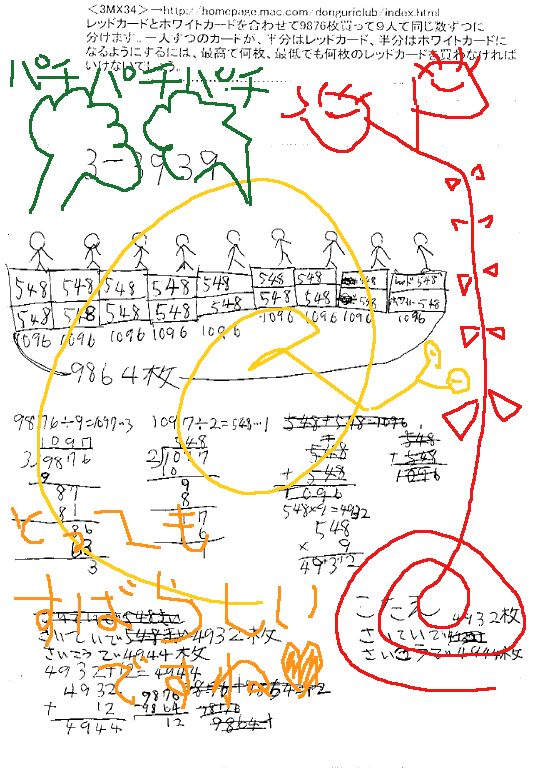 <3MX34>―http://homepage.mac.com/donguriclub/index.html
レッドカードとホワイトカードを合わせて9876枚買って9人で同じ数ずつに
分けます。一人ずつのカードが、半分はレッドカード、半分はホワイトカードに
なるようにするには、最高で何枚、最低でも何枚のレッドカードを買わなければ
いけないでしょう。
パチパチパチ
3-3939
548 548 548 548 548 548 548 548 レッド548
548 548 548 548 548 548 548 548 548
1096 1096 1096 1096 1096 1096 1096 1096 1096
9864枚
9876÷9=1097…3 1097÷2=548…1
1097
9876
9
87
81
86
63
3
548
2 1097
10
9
8
17
16
1
548
+548
1096
548×9=4932
548
× 9
4932
とっても
すばらしい
ですね
さいていで 4932枚
さいこうで4944枚
4932+12=4944
4932
+ 12
4944
9876
9864
12
こたえ
4932枚
さいていで
さいこうで4944枚